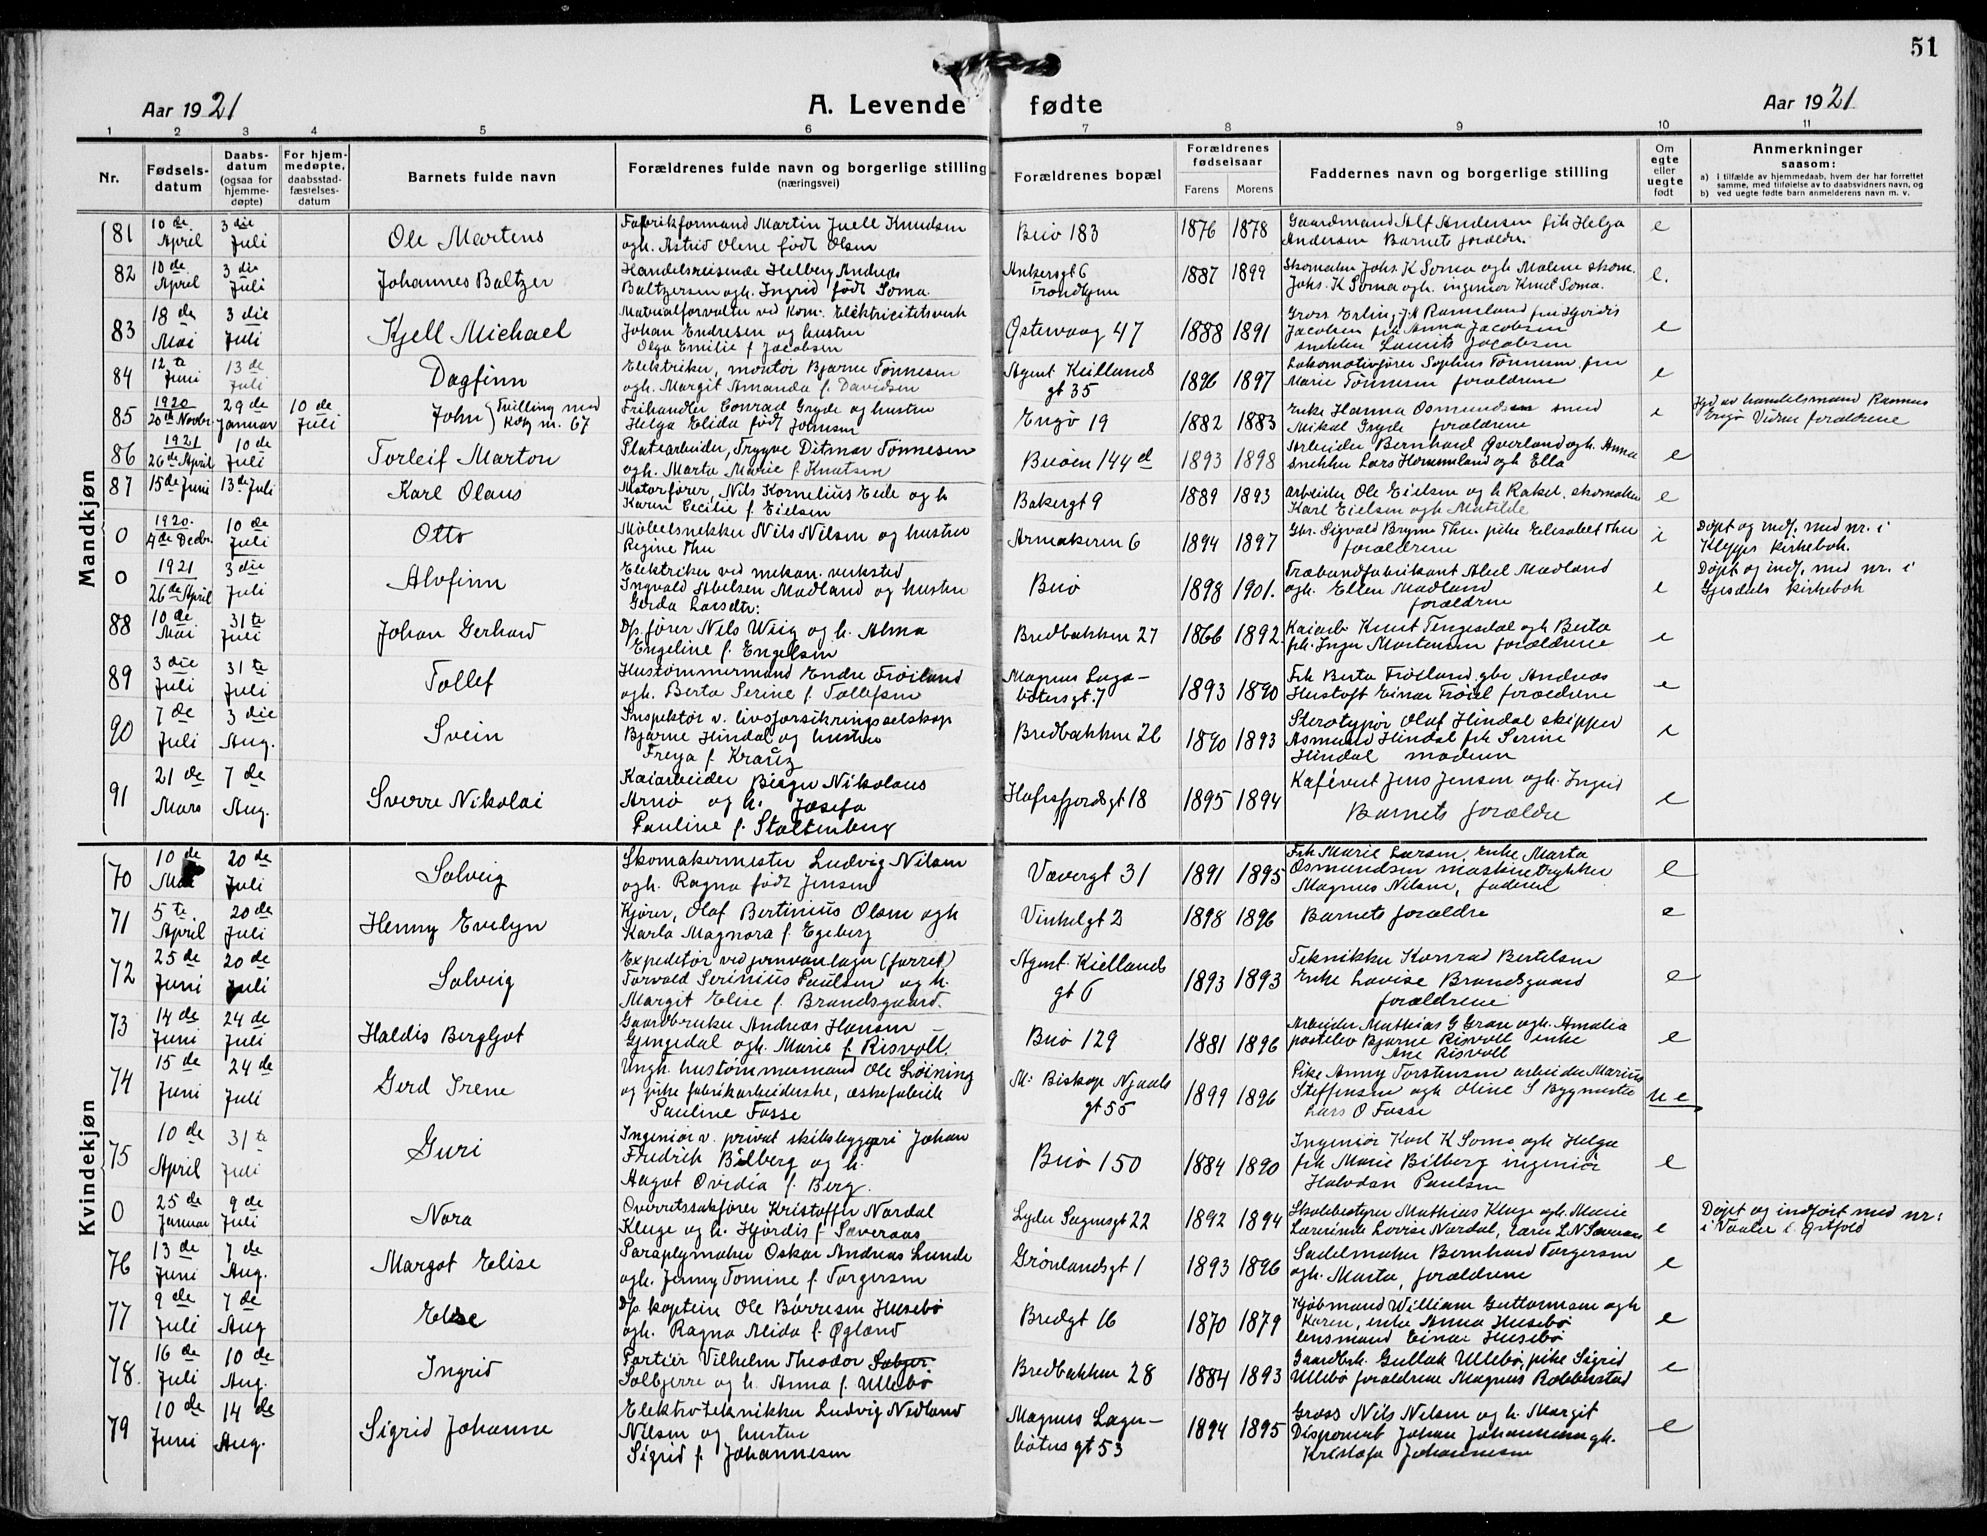 51
Aar 1921 A. Levende fødte Aar 1921
1 2 3 4 5 6 7 8 9 10 11
Nr. Fødsels-datum Daabs-datum (ogsaa for hjemme-døpte) For hjem-medøpte, daabsstad-fæstelses-datum Barnets fulde navn Forældrenes fulde navn og borgerlige stilling (næringsvei) Forældrenes bopæl Forældrenes fødselsaar Farens Morens Faddernes navn og borgerlige stilling Om egte eller uegte født Anmerkninger saasom:
a) I tilfælde av hjemmedaab, hvem der har forrettet samme, med tilføielse av to daabsvidners navn, og
b) ved uegte fødte barn anmelderens navn m. v.
Mandkjøn
81 10de April 3die Juli Ole Martens Fabrikformand Martin Juell Knudsen ogh. Astrid Olene født Olsen Buø 183 1876 1878 Gaardmand Alf Andersen frk Helga Andersen Barnets forældre e
82 10de April 3die Juli Johannes Baltzer Handelsreisende Helberg Andreas Baltzersen ogh. Ingrid født Soma Ankersgt 6 Trondhjem 1887 1899 Skomaker Johs. K Soma ogh Malene skom. Johs. K Soma ogh. ingeniør Knut Soma. e.
83 18de Mai 3die Juli Kjell Michael Materialforvalter ved Kom. Elektricitetsverk Johan Endresen og hustru Olga Emilie f Jacobsen Østervaag 47 1888 1891 Gross Erling Jacobsen frk Anna Jacobsen snekker Laurits Jacobsen e
84 12te Juni 13de Juli Dagfinn Elektriker, montør Bjarne Tønnesen ogh. Margit Amanda f. Davidsen Agent Kiellands gt 35 1896 1897 Lokomotivfører Sophus Tønnesen fru Marie Tønnesen forældrene e
85 1920 20de Novbr. 29de Januar 10de Juli John {Tvilling med Kvk nr. 67 Frihandler Conrad Gryde og hustru Helga Elida født Jonsen Engø 19 1882 1883 Enke Hanna Osmundsen smed Mikal Gryde forældrene e Hjd av handelsmand Rasmus Engø Vidner forældrene
86 1921 26de April 10de Juli Torleif Marton Platearbeider, Trygve Ditmar Tønnesen ogh. Marta Marie f. Knutsen Buøen 144d 1893 1898 Arbeider Bernhard Øverland ogh. Anna snekker Lars Hommeland ogh Ella e
87 15de Juni 13de Juli Karl Olaus Motorfører, Nils Kornelius Eide og h Karen Cecilie f. Eielsen Bakergt 9 1889 1893 Arbeider Ole Eielsen og h Rakel. skomaker Karl Eielsen ogh Matilde e
0 1920. 4de Decbr. 10de Juli Otto Møbelsnekker Nils Nilsen og hustru Regine Thu Armakeren 6 1894 1897 Gbr. Sigvald Bryne Thu pike Elisabet Thu forældrene i Døpt og indf. med nr. i Klepps kirkebok.
0 1921 26de April 3die Juli Alvfinn Elektriker ved mekan. verksted Ingvald Abelsen Madland og hustru Gerda Larsdtr: Buø 1898 1901. Træbandfabrikant Abel Madland ogh. Ellen Madland forældrene e Døpt og indf. med nr. i Gjesdals kirkebok
88 10de Mai 31te Juli Johan Gerhard D/s. fører Nils Wiig og h. Alma Engeline f. Engelsen Bredbakken 27 1866 1892 Kaiarb Knut Tengesdal og h Berta frk. Inger Mortensen forældrene e
89 3die Juli 31te Juli Tollef Hustømmermand Endre Frøiland ogh. Berta Serine f Tollefsen Magnus Lagabøtersgt. 7 1893 1890 Frk Berta Frøiland gbr. Andreas Hustoft Einar Frøil forældrene e
90 7de Juli 3die Aug. Svein Inspektør v. livsforsikringsselskap Bjarne Hindal og hustru Freya f. Krantz Bredbakken 26 1890 1893 Sterotypør Olaf Hindal skipper Asmund Hindal frk Serine Hindal moderen e
91 21de Mars 7de Aug. Sverre Nikolai Kaiarbeider Birger Nikolaus Arnø og h. Josefa Pauline f. Stoltenberg Hafrsfjordsgt 18 1895 1894 Kafévert Jens Jensen ogh. Ingrid Barnets forældre e
Kvindekjøn
70 10de Mai 20de Juli Solveig Skomakermester Ludvig Nilsen ogh. Ragna født Jensen Vævergt 31 1891 1895 Frk Marie Larsen, enke Marta Osmundsen maskintrykker Magnus Nilsen, faderen e
71 5te April 20de Juli Henny Evelyn Kjører, Olaf Bertinius Olsen ogh Karla Magnora f. Egeberg Vinkelgt 2 1898 1896 Barnets forældre e
72 25de Juni 20de Juli Solveig Expeditør ved jernvarelager (forret) Torvald Serinius Paulsen og h. Margit Elise f. Brandsgaard. Agent. Kiellands gt 6 1893 1893 Teknikker Konrad Bertelsen Enke Lovise Brandsgaard forældrene e
73 14de Juni 24de Juli Haldis Bergljot Gaardbruker Andreas Hansen Gjengedal ogh. Marie f. Risvoll. Buø 129 1881 1896 Arbeider Mathias G Grae ogh. Amalia postelev Bjarne Risvoll enke Ane Risvoll e
74 15de Juni 24de Juli Gerd Irene Ungk. hustømmermand Ole Løining og pike fabrikarbeiderske, æskefabrik Pauline Fosse M: Biskop Njaals gt 55 1899 1896 Pike Anny Torstensen arbeider Marius Steffensen ogh Oline S Bygmester Lars O Fosse u e
75 10de April 31te Juli Guri Ingeniør v. privat skibsbyggeri Johan Fredrik Bilberg og h. Aagot Ovidia f. Berg. Buø 150 1884 1890 Ingeniør Karl K Soma ogh Helga frk Marie Bilberg ingeniør Halvdan Paulsen e
0 25de Januar 9de Juli Nora Overretssakfører Kristoffer Nordal Kluge og h. Hjørdis f Saveraas Lyder Sagensgt 22 1892 1894 Skolebestyrer Mathias Kluge ogh. Marie Lærerinde Lovise Nordal, lærer L N Saveraas e Døpt og indført med nr: i Vaaler i Østfold
76 13de Juni 7de Aug. Margot Elise Paraplymaker Oskar Andreas Lunde ogh. Jenny Tomine f. Torgersen Grønlandsgt 1 1893 1896 Sadelmaker Bernhard Torgersen ogh. Marta, forældrene e
77 9de Juli 7de Aug Else D/s kaptein Ole Børresen Husebø ogh. Ragna Alida f. Øglænd Bredgt 16 1870 1879 Kjøbmand William Guttormsen ogh Karen, enke Anna Husebø lensmand Einar Husebø e
78. 16de Juli 10de Aug. Ingrid Portier Vilhelm Theodor Solbjerre og h. Anna f. Ullebø Bredbakken 28 1884 1893 Gaardbrk. Gullak Ullebø, pike Sigrid Ullebø forældrene Magnus Robberstad e
79 10de Juni 14de Aug. Sigrid Johanne Elektrotekniker Ludvig Nedland Nilsen og hustru Sigrid f. Johannesen Magnus Lagabøtersgt 53 1894 1895 Gross Nils Nilsen og h. Margit Disponent Johan Johannesen ogh. Kristofa Johannesen e